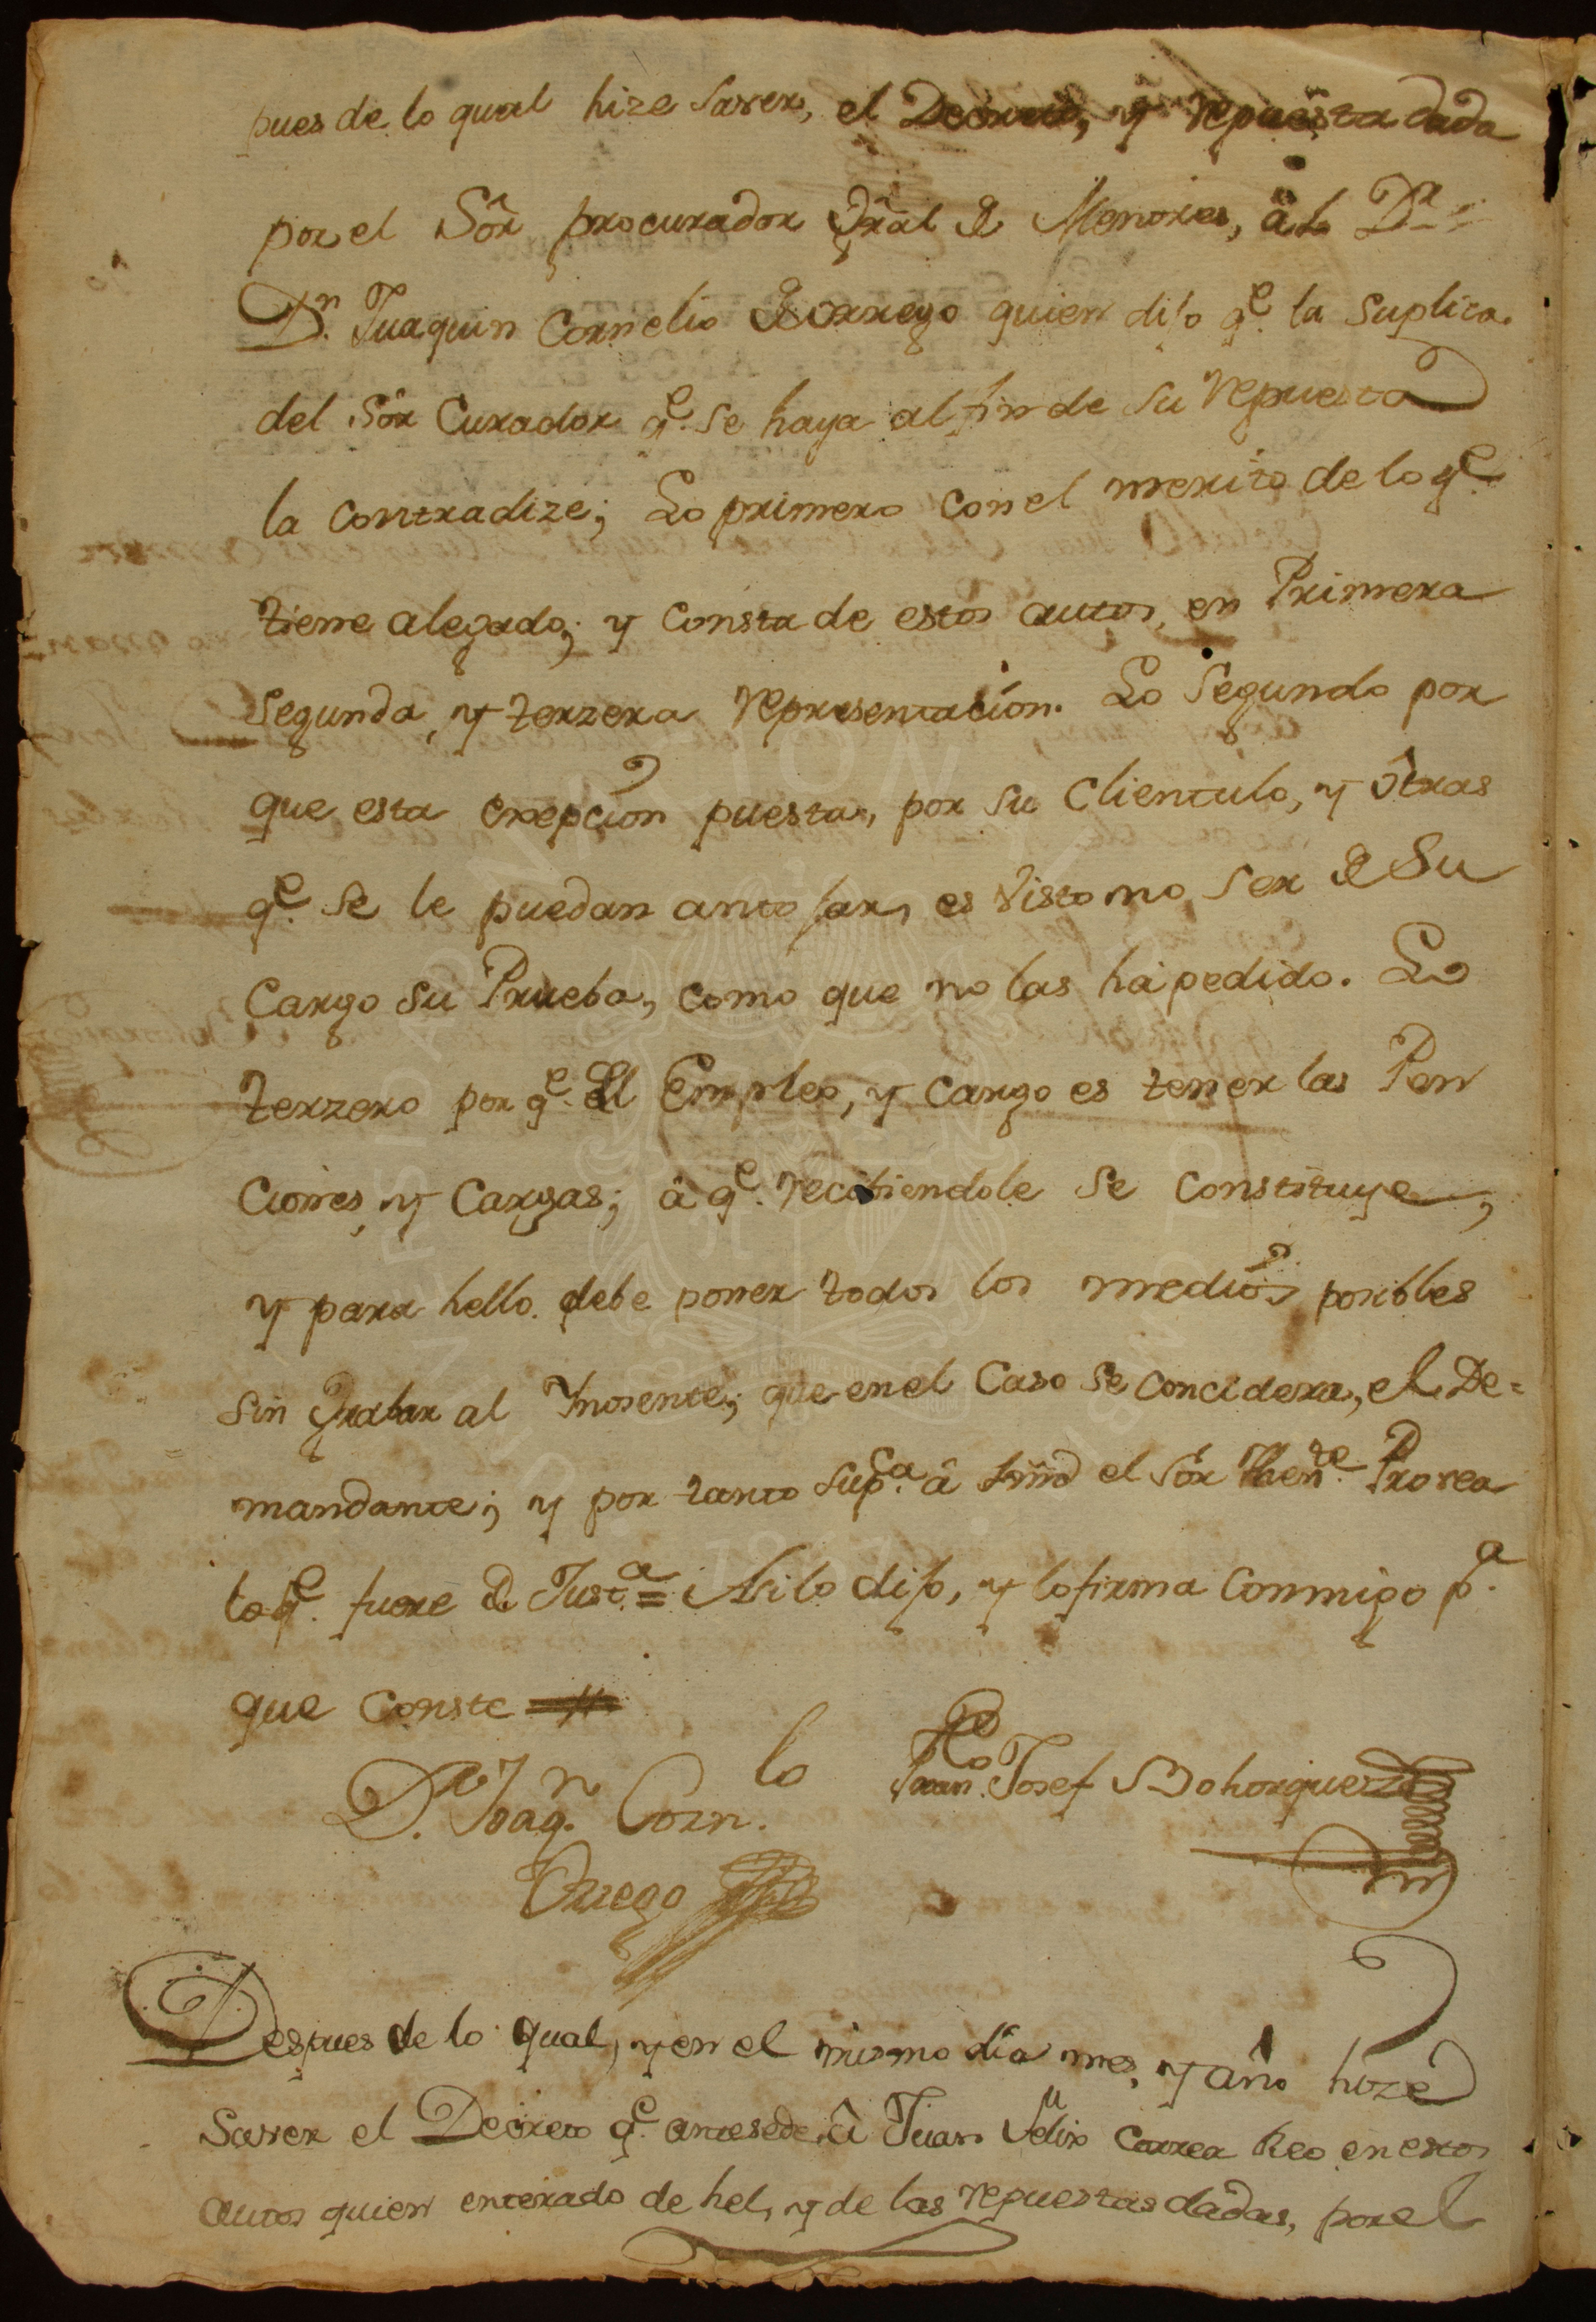 pues de lo qual hize saver, el Decreto, y repuesta dada
por el Sôr procurador Gral de Menores, â el Dr
Dn. Juaquin Cornelio Borrego quien dijo qe. la suplica
del Sôr Curador qe. se haya al fin de su repuesta
la contradize; Lo primero con el merito de lo qe.
tiene alegado; y consta de estos autos, en Primera
Segunda, y terzera representacion. Lo Segundo por
que esta exepcion puesta, por su Clientulo, y ôtras
qe. se le puedan antojar, es visto no ser de Su
Cargo su Prueba, como que no las há pedido. Lo
terzero por qe. el Empleo, y cargo es tener las Pen
ciones, y Cargas; â qe. recibiendole se constituye,
y para hello debe poner todos los medios posibles
sin Grabar al Ynosente; que en el Caso se concidera, el De=
mandante; y por tanto supca. â el sôr Thente. Provea
lo qe. fuere de Justa. = Asi lo dijo, y lo firma conmigo pa.
que conste =
Dr. Joaqn. Cornlo.
Orrego
Juan Josef Bohorquez
Despues de lo qual, y en el mismo dia mes, y año hize
Saver el Decreto qe. antesede â Juan Felix Correa Reo en estos
autos quien enterado de hel, y de las repuestas dadas, por el